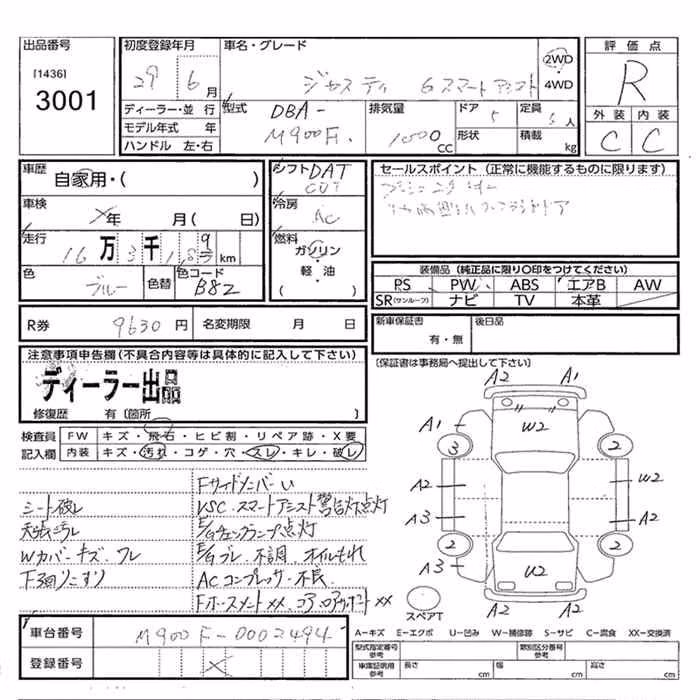 出品番号
[1436]
3001
初度登録年月
29 6月
車名・グレード
ジャスティ G スマートアシスト
2WD
・4WD
評価点
R
外装 内装
C C
ディーラー・並行
モデル年式 年
ハンドル 左・右
型式
DBA-
M900F.
排気量
1000
CC
ドア
5
形状
定員
5人
積載
kg
車歴
自家用・( )
車検
X年 月( 日)
走行
16万3千1 km
色
ブルー
色替
色コード
B82
シフト DAT
CVT
冷房
AC
燃料
ガソリン
・軽・油
( )
セールスポイント (正常に機能するものに限ります)
装備品 (純正品に限り○印をつけてください)
PS PW ABS エアB AW
SR(サンルーフ) ナビ TV 本革
R券 9630円 名変期限 月 日
新車保証書
有・無
後日品
〔保証書は事務局へ提出して下さい〕
注意事項申告欄(不具合内容等は具体的に記入して下さい)
ディーラー出品
修復歴 有〔箇所 〕
検査員 FW キズ・飛石・ヒビ割・リペア跡・X要
記入欄 内装 キズ・汚れ・コゲ・穴・スレ・キレ・破レ
Fサイドメンバーい
シート破レ VSC.スマートアシスト警告灯点灯
天張汚レ E/Gチェックランプ点灯
Wカバーキズ・ワレ E/Gブレ.不調.オイルもれ
下廻りこすり ACコンプレッサー不良
Fホースメントxx.コアロアサポートxx
A2 A1
A1 W2
3 2
A2 W2
A3 A2
2 2
A3 U2
スペアT
A2
車台番号 M900F-0002494
登録番号 X
A-キズ E-エクボ U-凹み W-補修跡 S-サビ C-腐食 XX-交換済
型式指定番号
参考
類別区分番号
参考
車庫証明用
参考
長さ cm 幅 cm 高さ cm